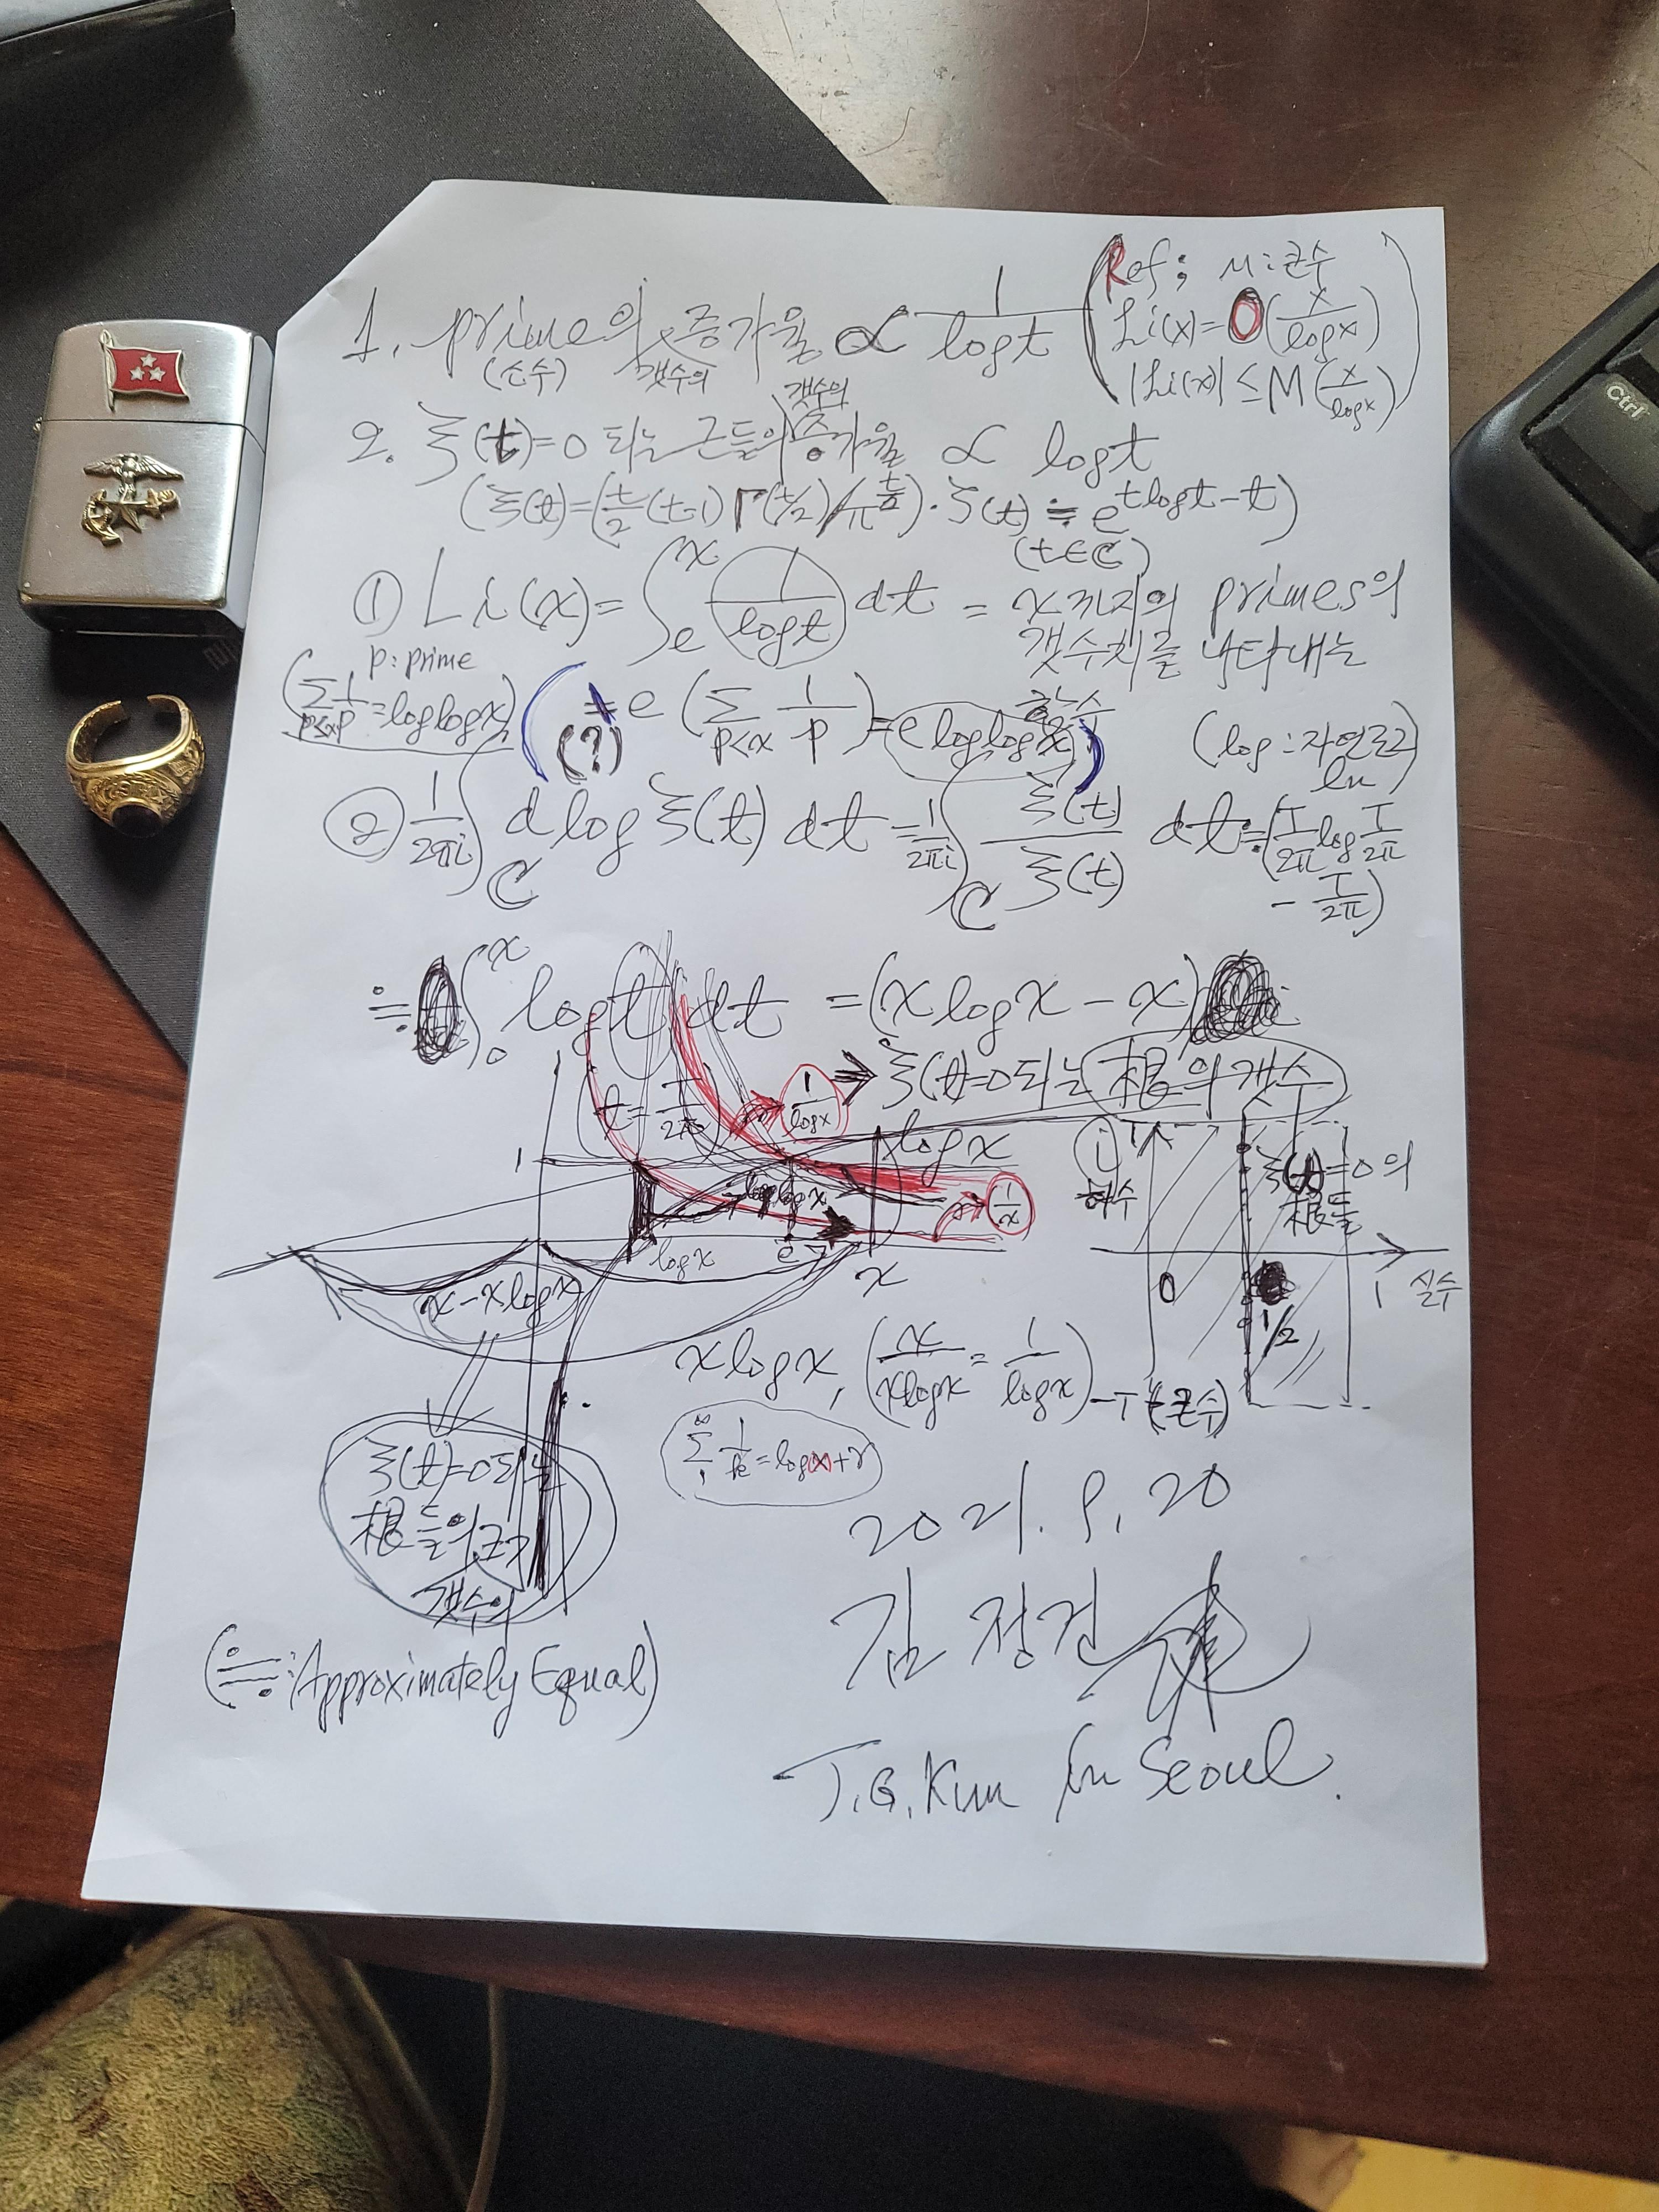 1. prime의 증가율 ∝ 1/logt
(소수) 갯수의
(Ref; M:큰수
Li(x)=O(x/logx)
|Li(x)| ≤ M(x/logx))
2. ξ(t)=0 되는 근들의 증가율 ∝ logt
갯수의
(ξ(t)=(t/2(t-1)Γ(t/2)/π^(t/2))·ζ(t) ≒ e^(tlogt-t))
(t∈ℂ)
① Li(x)=∫_e^x 1/logt dt = x까지의 primes의
갯수치를 나타내는
함수
p: prime
(Σ_{p<x} 1/p=loglogx)
(≒ e (Σ_{p<x} 1/p)=e loglogx)
(?)
(log:자연로그
ln)
② 1/2πi ∫_ℂ d log ξ(t) dt = 1/2πi ∫_ℂ ξ(t)/ξ(t) dt ≒ (T/2π log T/2π
- T/2π)
≒ ∫_0^x logt dt = (x logx - x)
→ ξ(t)=0되는 根의 갯수
t=T/2π
1/logx
logx
1
loglogx
1/x
logx
e
x
x-xlogx
i
T
허수
ξ(t)=0의
根들
0
1/2
1 실수
xlogx, (x/xlogx = 1/logx)
-T (큰수)
Σ_1^∞ 1/k=log∞+γ
ξ(t)=0되는
根들의
갯수의
2021. 9. 20
김정건
(≒:Approximately Equal)
J.G.Kim in Seoul.
Ctrl